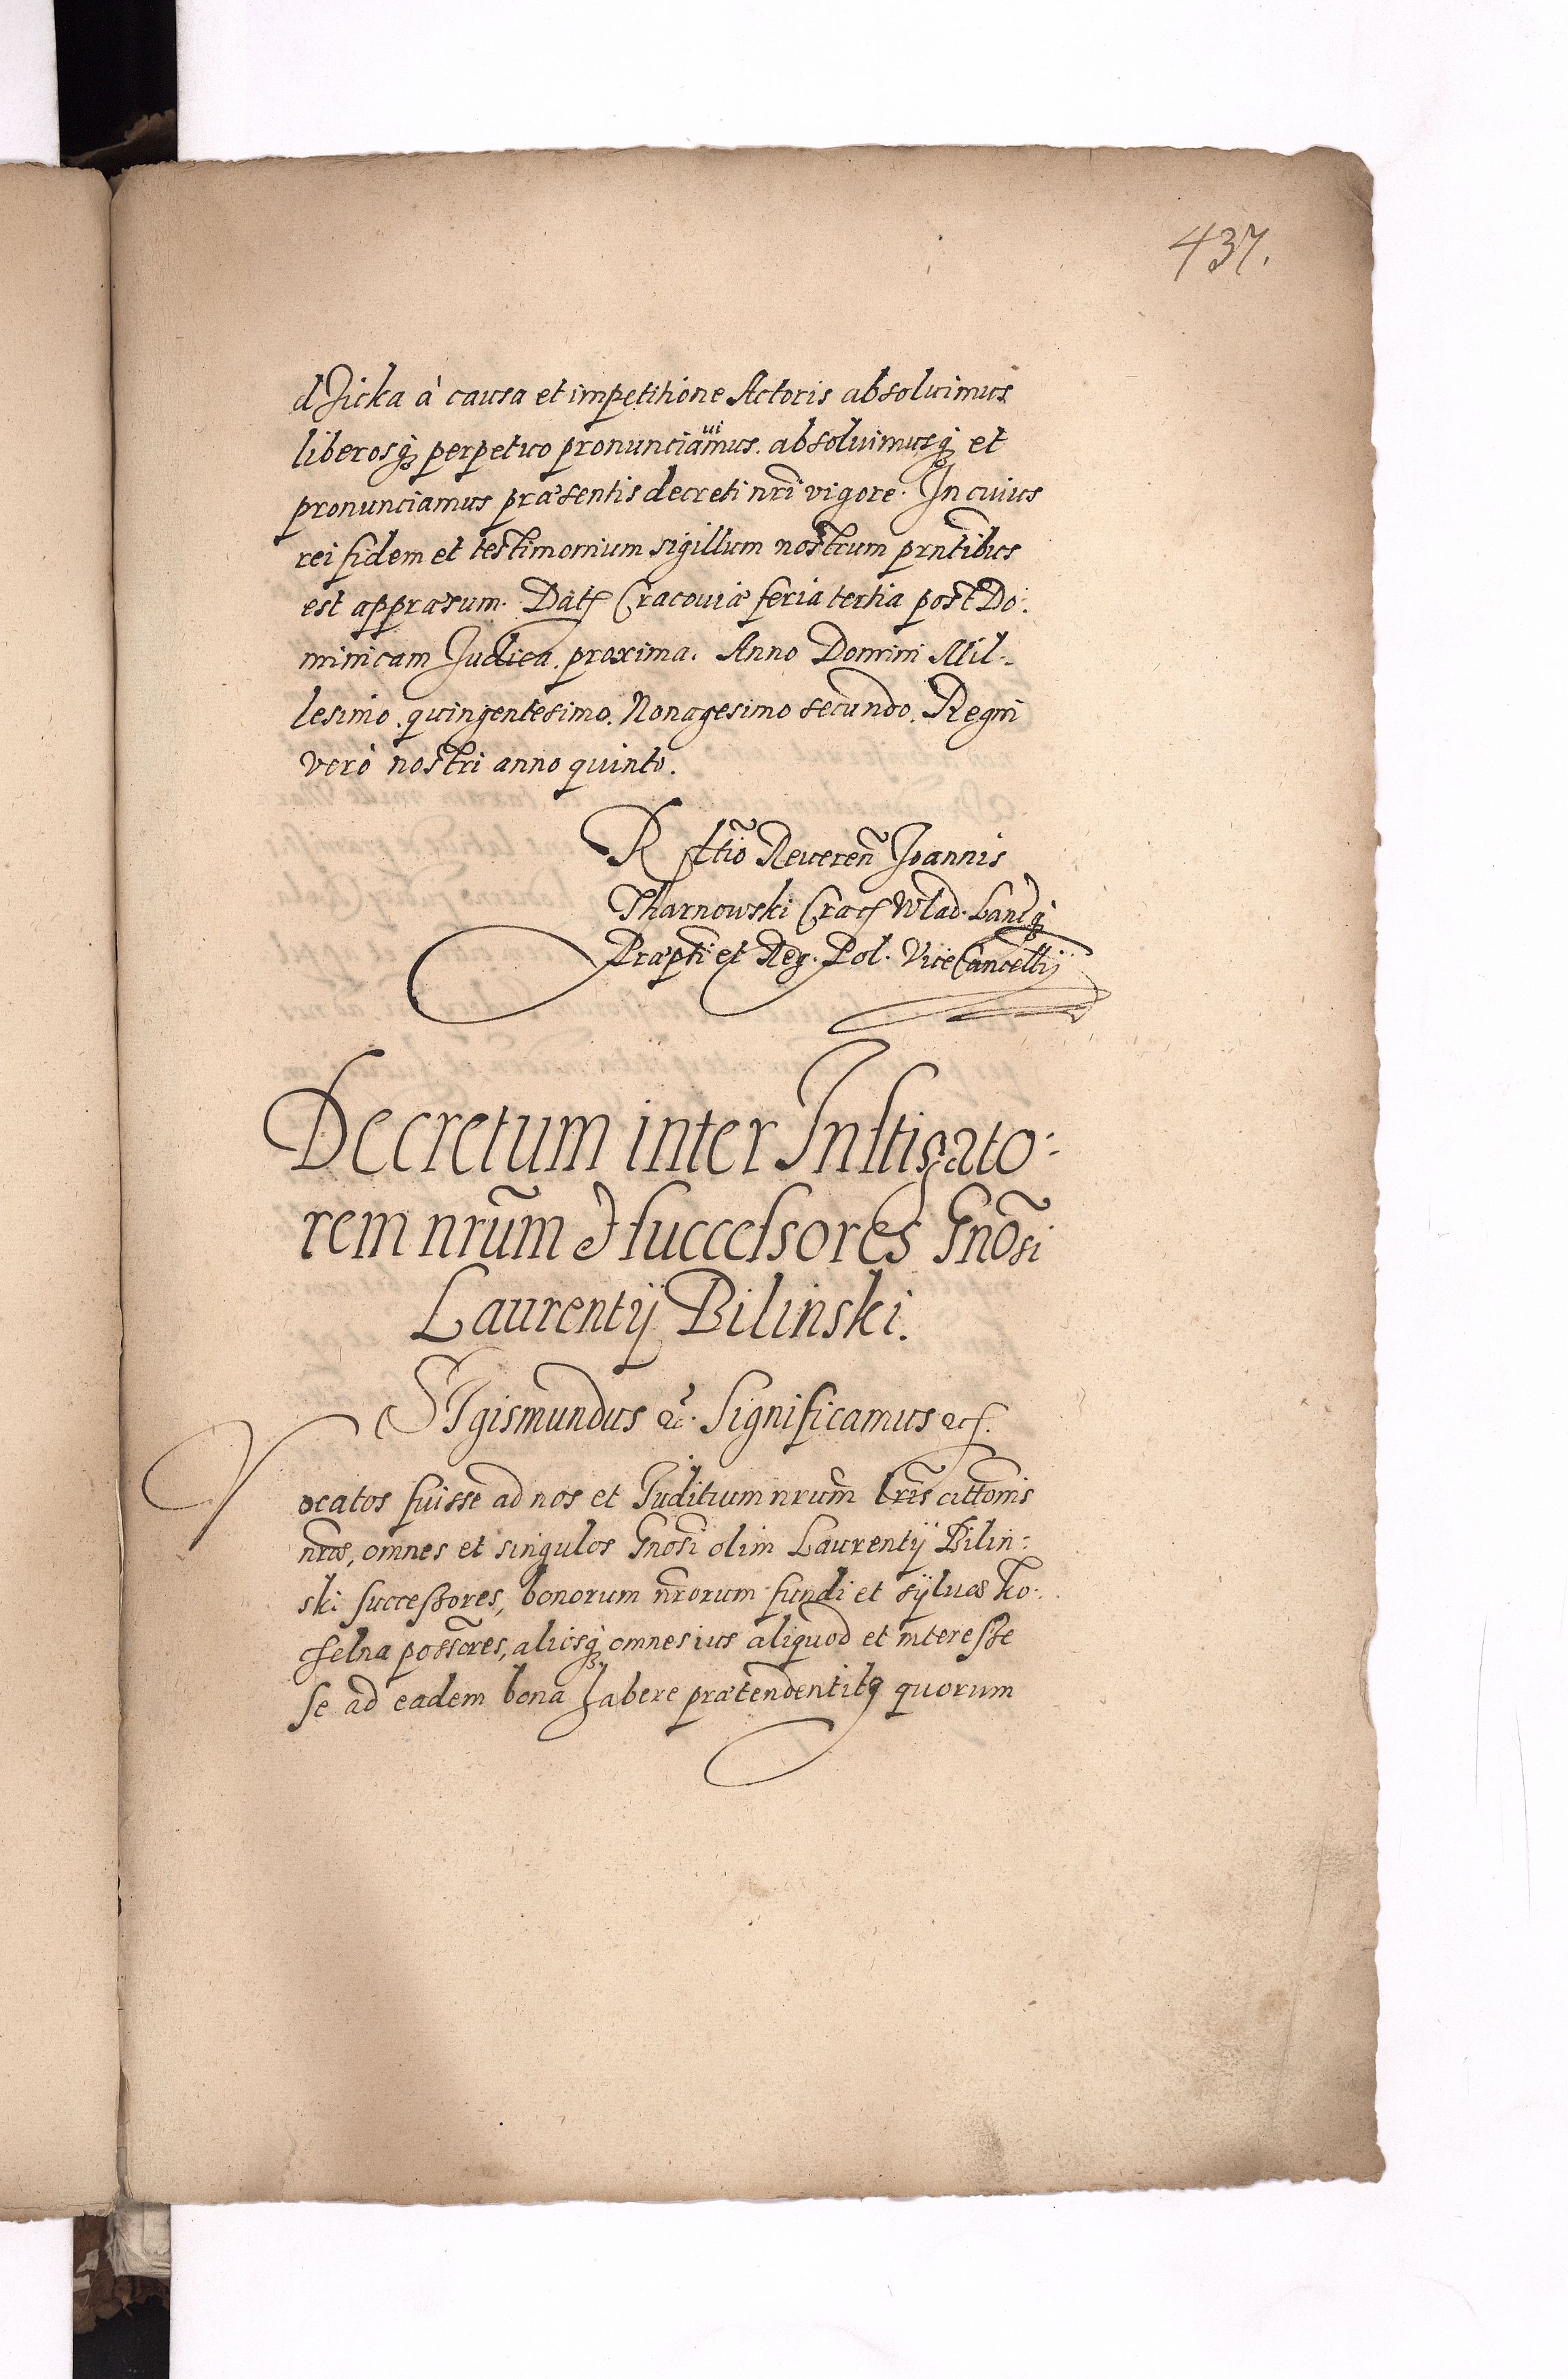 437.
dzicka à causa et impetitione Actoris absoluimus
liberosq; perpetuo pronunciauimus. absoluimusq; et
pronunciamus præsentis decreti nr̃i vigore. In cuius
rei fidem et testimonium sigillum nostrum prñtibus
est appræsum. Dat Cracouiæ feria tertia post Do:
minicam Judica proxima. Anno Domini Mil-
lesimo quingentesimo. Nonagesimo secundo. Regni
verò nostri anno quinto.
Rltio Reueren̄ Joannis
Tharnowski Crac Wlad. Lancq;
Præpti et Reg. Pol. ViceCancellij
Decretum inter Instigato:
rem nrūm & successores Gnōsi
Laurentij Bilinski.
SIgismundus &c. Significamus &c.
Vocatos fuisse ad nos et Juditium nrum lrīs cittonis
nrās, omnes et singulos Gnosi olim Laurentij Bilin:
ski successores, bonorum nrorum fundi et syluæ Ko:
sselna possores, aliosq; omnes ius aliquod et interesse
se ad eadem bona habere prætendentibq quorum